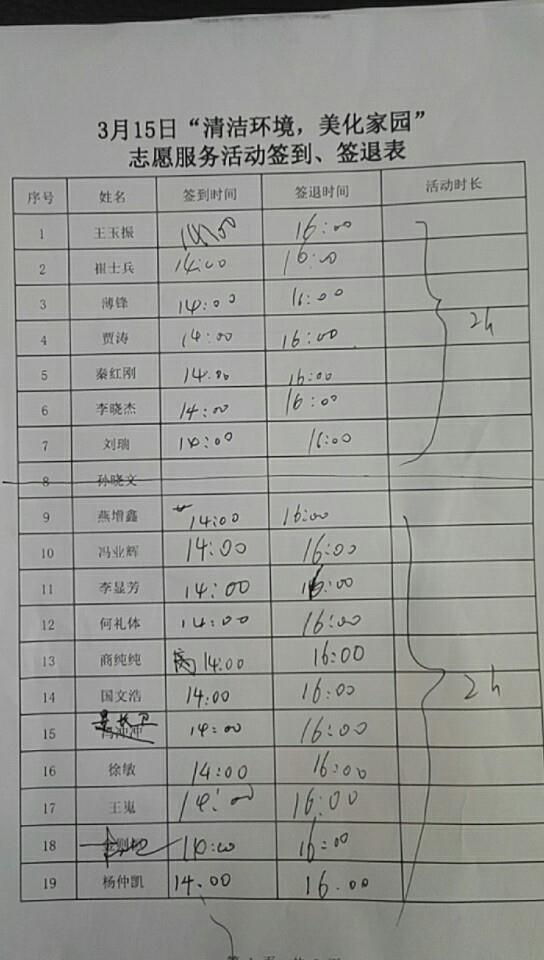 3月15日“清洁环境，美化家园”
志愿服务活动签到、签退表
序号 姓名 签到时间 签退时间 活动时长
1 王玉振 14:00 16:00
2 崔士兵 14:00 16:00
3 薄锋 14:00 16:00
4 贾涛 14:00 16:00 2h
5 秦红刚 14:00 16:00
6 李晓杰 14:00 16:00
7 刘瑞 14:00 16:00
8 孙晓文
9 燕增鑫 14:00 16:00
10 冯业辉 14:00 16:00
11 李显芳 14:00 16:00
12 何礼体 14:00 16:00
13 商纯纯 14:00 16:00
14 国文浩 14:00 16:00 2h
15 14:00 16:00
16 徐敏 14:00 16:00
17 王嵬 14:00 16:00
18 14:00 16:00
19 杨仲凯 14.00 16.00